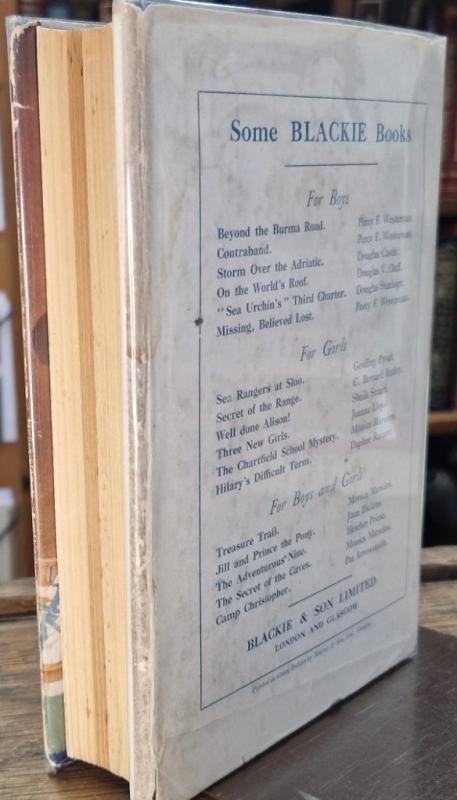 Some BLACKIE Books
For Boys
Beyond the Burma Road. Percy F. Westerman.
Contraband. Percy F. Westerman.
Storm Over the Adriatic. Douglas
On the World's Roof. Douglas V. Duff.
"Sea Urchin's" Third Charter. Douglas
Missing, Believed Lost. Percy F. Westerman.
For Girls
Sea Rangers at Sloo. Geoffrey Prout.
Secret of the Range. C. Bernard Rutley.
Well done Alison! Sheila Stuart.
Three New Girls. Joanna Lloyd.
The Chartfield School Mystery. Monica Marsden.
Hilary's Difficult Term. Daphne
For Boys and Girls
Treasure Trail. Monica Marsden.
Jill and Prince the Pony. Joan Dickens.
The Adventurous Nine. Heather Prime.
The Secret of the Caves. Monica Marsden.
Camp Christopher. Pat
BLACKIE & SON LIMITED
LONDON AND GLASGOW
Printed in Great Britain by Blackie & Son, Ltd., Glasgow